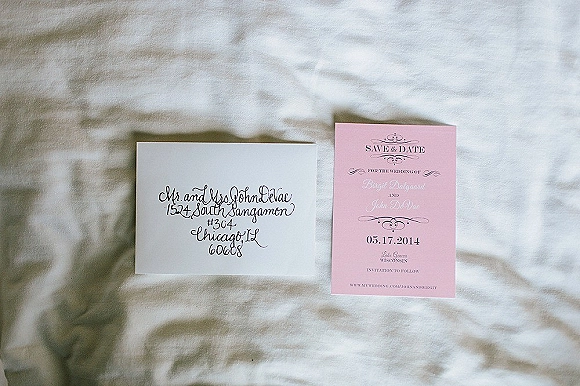 Mr. and Mrs John DeVac
1524 South Sangamon
#304
Chicago, IL
60608
SAVE the DATE
FOR THE WEDDING OF
Birgit Dalgaard
AND
John DeVac
05.17.2014
Lake Geneva
WISCONSIN
INVITATION TO FOLLOW